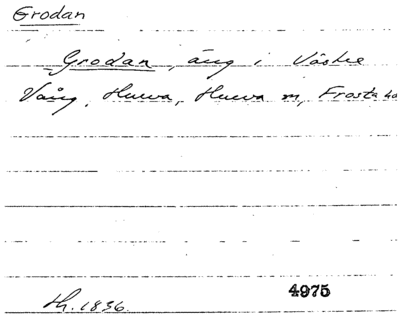 Grodan
Grodan, äng i Västre
Vång, Hurva, Hurva m, Frosta hd
Th. 1836.
4975